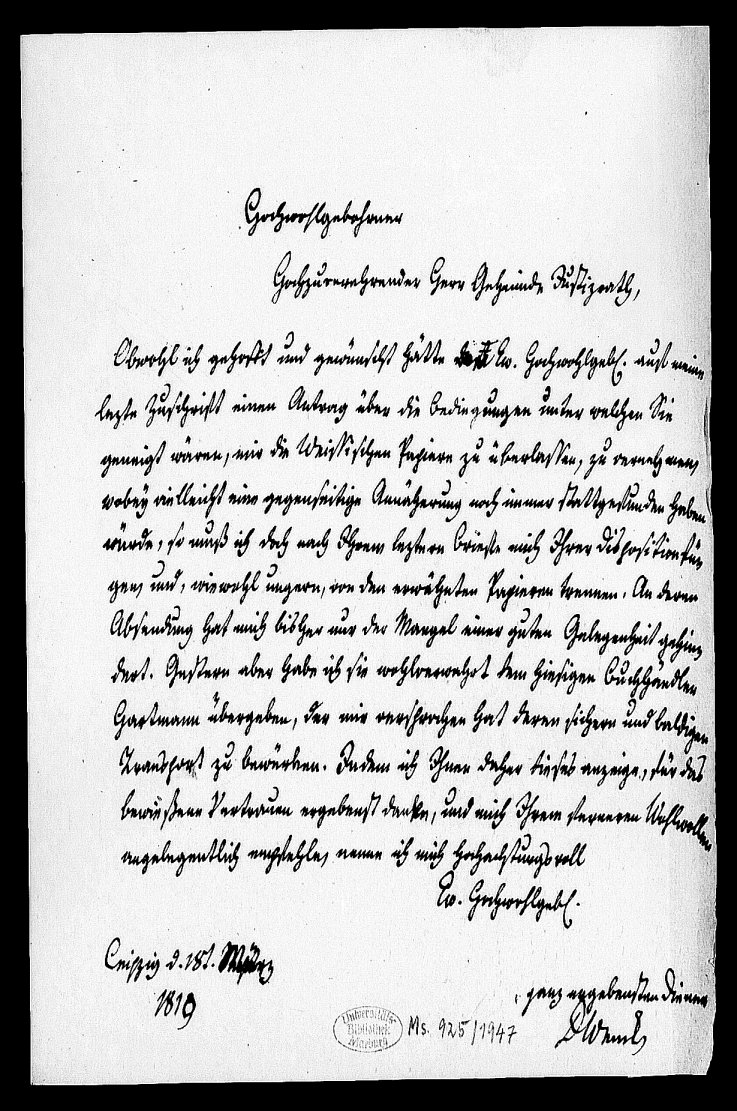 Hochwohlgebohrner
Hochzuverehrender Herr Geheimde Justizrath,
Obwohl ich gehofft und gewünscht hätte Ew. Hochwohlgeb. auf meine
lezte Zuschrift einen Antrag über die Bedingungen unter welchen Sie
geneigt wären, mir die Weissischen Papiere zu überlassen, zu vernehmen,
wobey vielleicht eine gegenseitige Annäherung noch immer stattgefunden haben
würde, so muß ich doch nach Ihrem leztern Briefe mich Ihrer Disposition fü-
gen, und, wiewohl ungern, von den erwähnten Papieren trennen. An deren
Absendung hat mich bisher nur der Mangel einer guten Gelegenheit gehin-
dert. Gestern aber habe ich sie wohlverwahrt dem hiesigen Buchhändler
Hartmann übergeben, der mir versprochen hat deren sichern und baldigen
Transport zu bewürken. Indem ich Ihnen daher dieses anzeige, für das
bewiesene Vertrauen ergebenst danke, und mich Ihrem ferneren Wohlwollen
angelegentlich empfehle, nenne ich mich hochachtungsvoll
Ew. Hochwohlgeb.
Leipzig d. 18t. März
1819
ganz ergebensten Diener
DWenck
Universitäts-
Bibliothek
Marburg
Ms. 925/1947